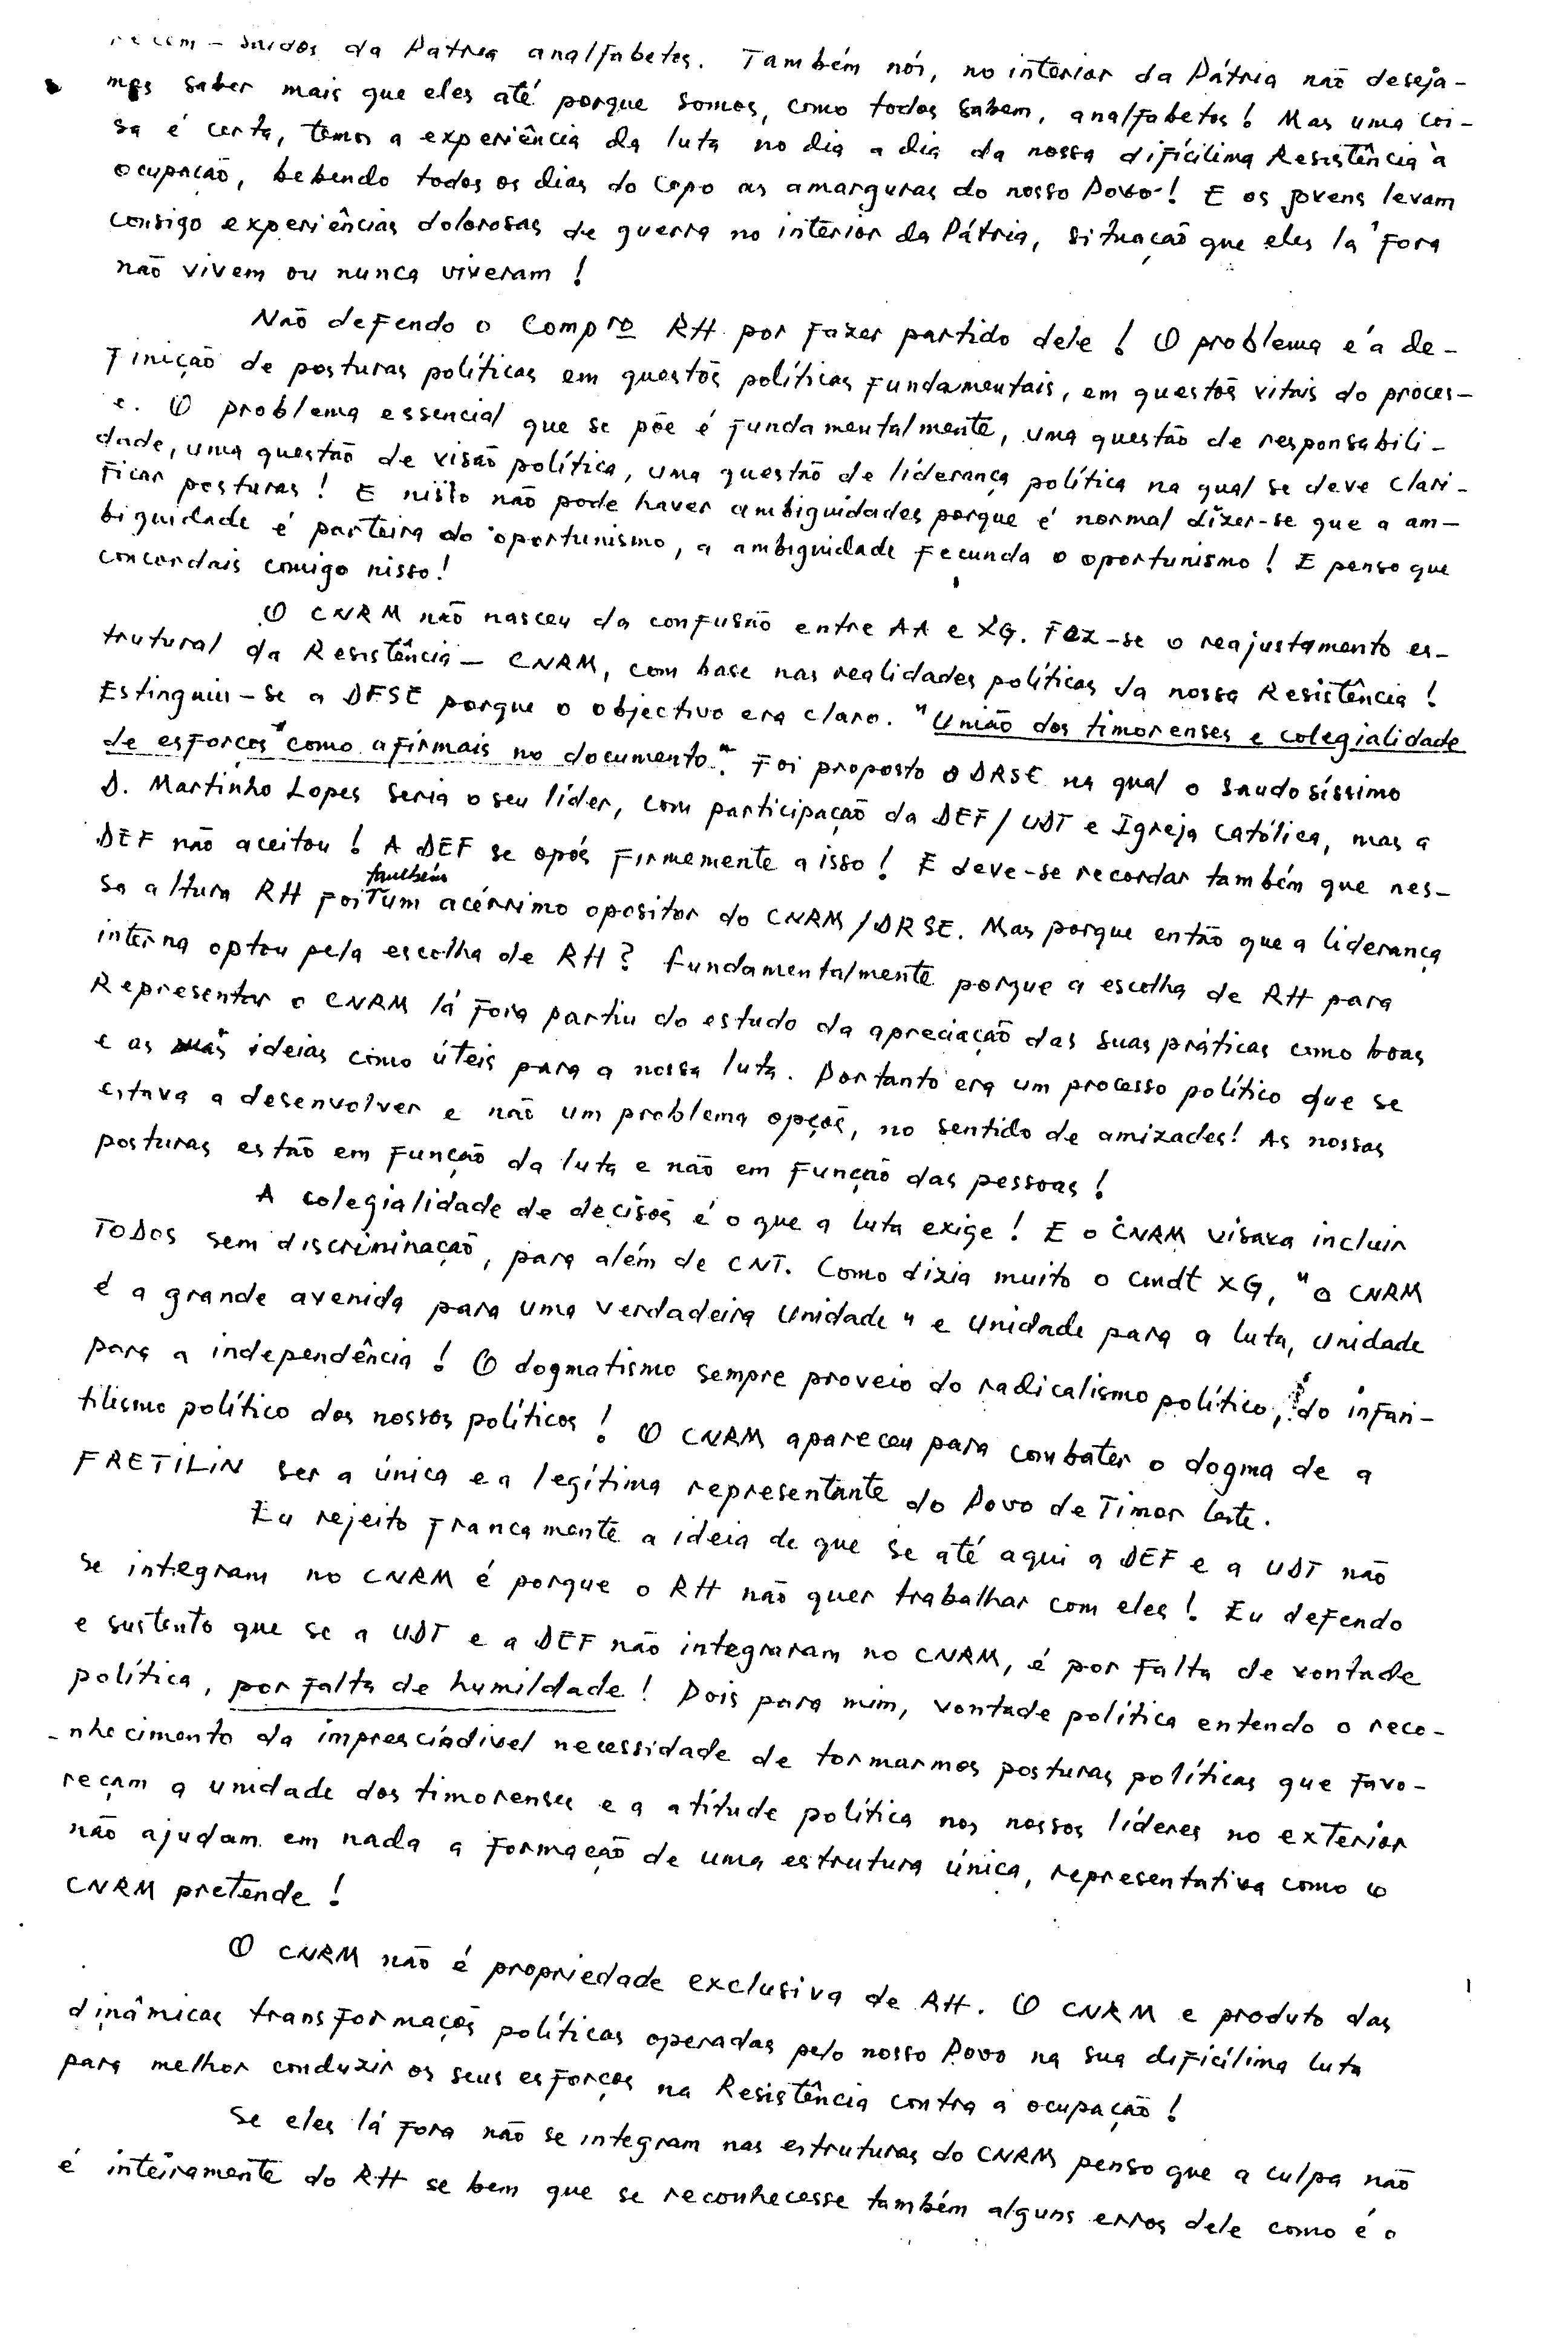 recem-saidos da Pátria analfabetos. Também nós, no interior da Pátria não deseja-
mos saber mais que eles até porque somos, como todos sabem, analfabetos! Mas uma coi-
sa é certa, temos a experiência da luta no dia a dia da nossa dificílima Resistência à
ocupação, bebendo todos os dias do copo as amarguras do nosso Povo! E os jovens levam
consigo experiências dolorosas de guerra no interior da Pátria, situação que eles lá fora
não vivem ou nunca viveram!
Não defendo o Compro RH por fazer partido dele! O problema é a de-
finição de posturas políticas em questõs políticas fundamentais, em questõs vitais do proces-
O problema essencial que se põe é fundamentalmente, uma questão de responsabili-
dade, uma questão de visão política, uma questão de liderança política na qual se deve clari-
ficar posturas! E nisto não pode haver ambiguidades porque é normal dizer-se que a am-
biguidade é parteira do oportunismo, a ambiguidade fecunda o oportunismo! E penso que
concordais comigo nisso!
O CNRM não nasceu da confusão entre AA e XG. Fez-se o reajustamento es-
trutural da Resistência - CNRM, com base nas realidades políticas da nossa Resistência!
Estinguiu-se a DFSE porque o objectivo era claro. "União dos timorenses e colegialidade
de esforços" como afirmais no documento". Foi proposto a DRSE na qual o saudosíssimo
D. Martinho Lopes seria o seu líder, com participação da DEF/UDT e Igreja Católica, mas a
DEF não aceitou! A DEF se opôs firmemente a isso! E deve-se recordar também que nes-
sa altura RH foi também um acérrimo opositor do CNRM/DRSE. Mas porque então que a liderança
interna optou pela escolha de RH? Fundamentalmente porque a escolha de RH para
Representar o CNRM lá fora partiu do estudo da apreciação das suas práticas como boas
e as suas ideias como úteis para a nossa luta. Portanto era um processo político que se
estava a desenvolver e não um problema opçõs, no sentido de amizades! As nossas
posturas estão em função da luta e não em função das pessoas!
A colegialidade de decisõs é o que a luta exige! E o CNRM visava incluir
TODOS sem discriminação, para além de CNT. Como dizia muito o cmdt XG, "o CNRM
é a grande avenida para uma verdadeira Unidade" e Unidade para a luta, Unidade
para a independência! O dogmatismo sempre proveio do radicalismo político, do infan-
tilismo político dos nossos políticos! O CNRM apareceu para combater o dogma de a
FRETILIN ser a única e a legítima representante do Povo de Timor Leste.
Eu rejeito francamente a ideia de que se até aqui a DEF e a UDT não
se integram no CNRM é porque o RH não quer trabalhar com eles! Eu defendo
e sustento que se a UDT e a DEF não integraram no CNRM, é por falta de vontade
política, por falta de humildade! Pois para mim, vontade política entendo o reco-
nhecimento da imprescíndivel necessidade de tormarmos posturas políticas que favo-
reçam a unidade dos timorenses e a atitude política nos nossos líderes no exterior
não ajudam em nada a formação de uma estrutura única, representativa como o
CNRM pretende!
O CNRM não é propriedade exclusiva de RH. O CNRM e produto das
dinâmicas transformaçõs políticas operadas pelo nosso Povo na sua dificílima luta
para melhor conduzir os seus esforços na Resistência contra a ocupação!
Se eles lá fora não se integram nas estruturas do CNRM penso que a culpa não
é inteiramente do RH se bem que se reconhecesse também alguns erros dele como é o